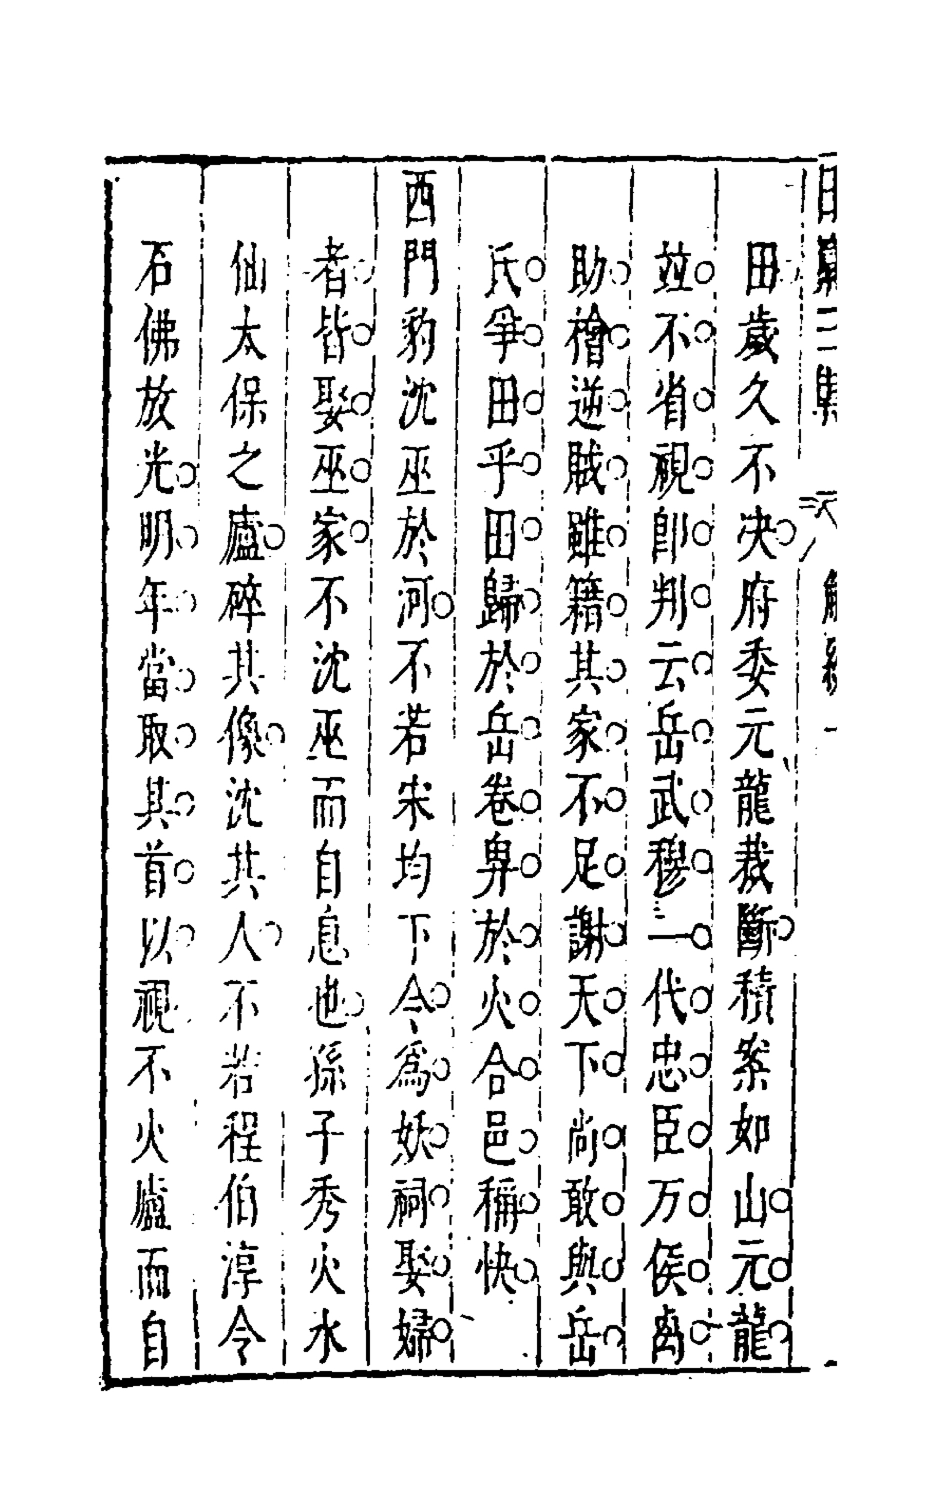 田歲久不决府委元龍裁斷積案如山元龍
竝不省視卽判云岳武穆一代忠臣万俟卨
助檜逆賊雖籍其家不足謝天下尚敢與岳
氏爭田乎田歸於岳卷畀於火合邑稱快
西門豹沈巫於河不若宋均下令為妖祠娶婦
者皆娶巫家不沈巫而自息也孫子秀火水
仙太保之廬碎其像沈其人不若程伯淳令
石佛放光明年當取其首以視不火廬而自